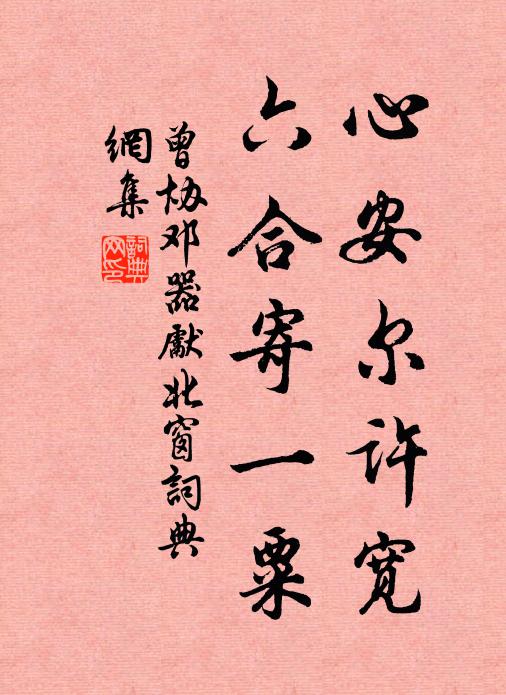 心安尔许宽
六合寄一粟
曾协邓器献北窗词典
網集
詞典
网印